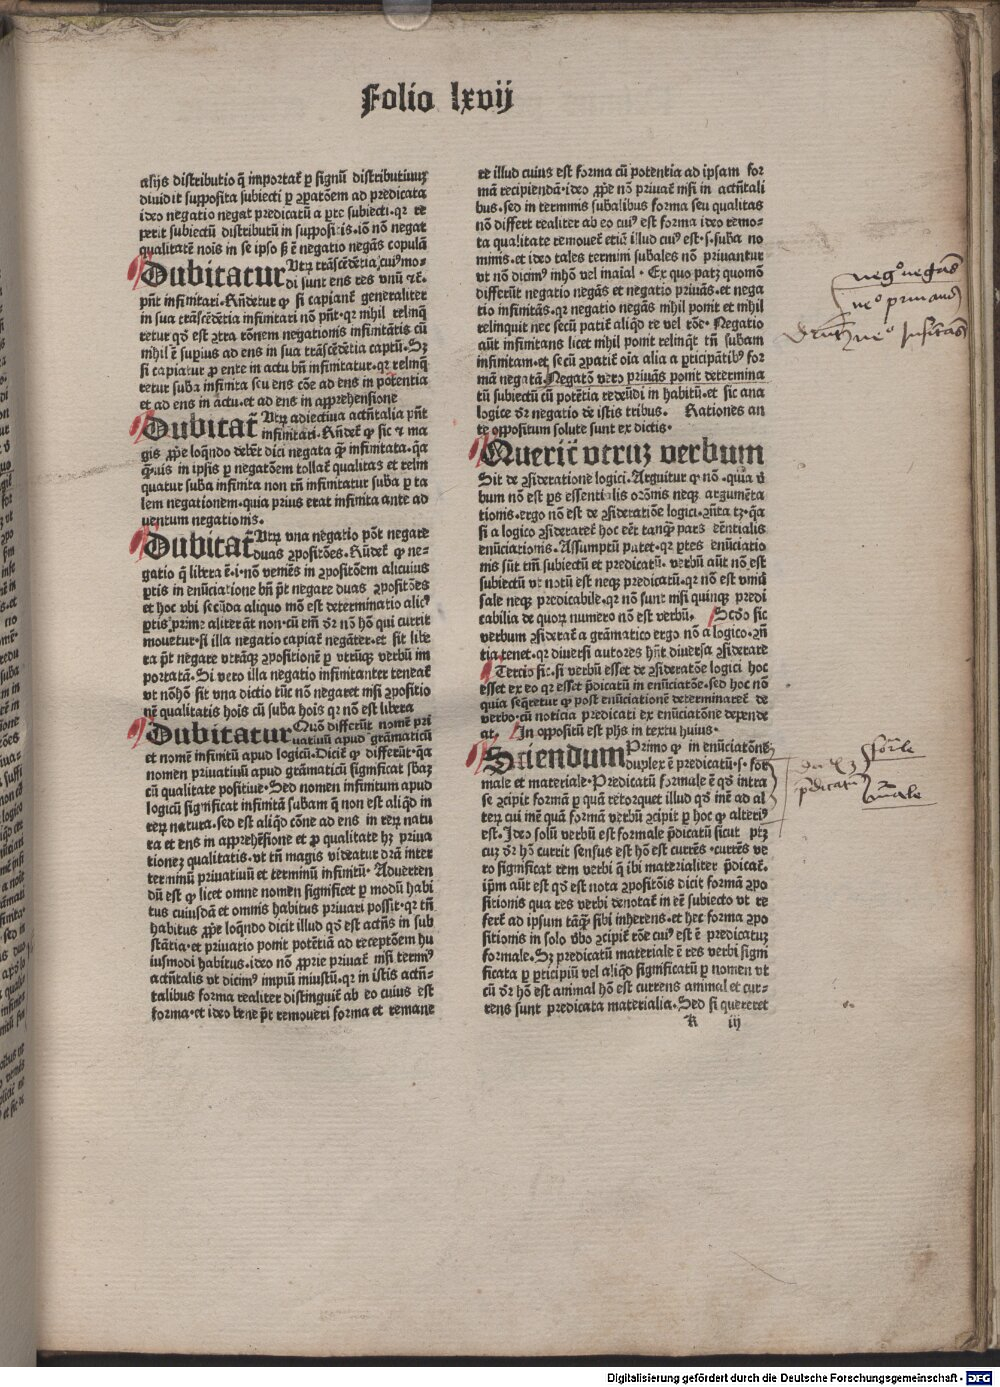 Folio lxvij
alijs distributio q̄ importat̄ ꝑ signū distributiuuȝ
diuidit supposita subiecti ꝑ ꝯparatōem ad predicata
ideo negatio negat predicatū a ꝑte subiecti. qꝛ re
petit subiectū distributū in suppositis. iō nō negat
qualitatē nois in se ipso ß ē negatio negās copulā
Dubitatur Vtꝝ trāscēdētia cuiꝰmo-
di sunt ens res vnū ⁊c̄.
pn̄t infinitari. Rn̄detur ꝙ si capiant̄ generaliter
in sua trāscēdētia infinitari nō pn̄t. qꝛ nihil relinq̄
retur qd̄ est ꝯtra rōnem negationis infinitātis cū
nihil ē supius ad ens in sua trāscēdētia captū. Sȝ
si capiatur ꝓ ente in actu bn̄ infinitatur. qꝛ relinq̄
retur suba infinita seu ens cōe ad ens in potentia
et ad ens in actu. et ad ens in apprehensione
Dubitat̄ Vtꝝ adiectiua accn̄talia pn̄t
infinitari. Rn̄det̄ ꝙ sic ⁊ ma
gis ꝓpe loqn̄do debēt dici negata ꝙ̄ infinitata. q̄a
ꝙ̄uis in ipsis ꝑ negatōem tollat̄ qualitas et relin
quatur suba infinita non tn̄ infinitatur suba ꝑ ta
lem negationem. quia prius erat infinita ante ad
uentum negationis.
Dubitat̄ Vtꝝ vna negatio pōt negare
duas ꝓpositōes. Rn̄det̄ ꝙ ne-
gatio q̄ libera ē. i. nō veniēs in ꝯpositōem alicuius
ꝑtis in enūciatione bn̄ pt̄ negare duas ꝓpositōes
et hoc vbi secūda aliquo mō est determinatio alicꝰ
ꝑtis prime aliter āt non. cū em̄ dꝛ nō hō qui currit
mouetur. si illa negatio capiat̄ negāter. et sit libe
ra pt̄ negare vtrāqȝ ꝓpositionē ꝑ vtrūqȝ verbū im
portatā. Si vero illa negatio infinitanter teneat̄
vt nōhō sit vna dictio tūc nō negaret nisi ꝓpositio
nē qualitatis hois cū suba hois qꝛ nō est libera
Dubitatur Quō differūt nomē pri
uatiuū apud grāmaticū
et nomē infinitū apud logicū. Dicit̄ ꝙ differūt. q̄a
nomen priuatiuū apud grāmaticū significat sbaȝ
cū qualitate positiue. Sed nomen infinitum apud
logicū significat infinitā subam q̄ non est aliqd̄ in
reꝝ natura. sed est aliqd̄ cōne ad ens in reꝝ natu
ra et ens in apprehēsione et ꝓ qualitate hȝ priua
tioneȝ qualitatis. vt tn̄ magis videatur dr̄a inter
terminū priuatiuū et terminū infinitū. Aduerten
dū est ꝙ licet omne nomen significet ꝑ modū habi
tus cuiusdā et omnis habitus priuari possit. qꝛ tn̄
habitus ꝓpe loqn̄do dicit illud qd̄ est actn̄s in sub
stātia. et priuatio ponit potētiā ad receptōem hu
iusmodi habitus. ideo nō ꝓprie priuat̄ nisi termiꝰ
actn̄talis vt dicimꝰ impiū iniustū. qꝛ in istis actn̄-
talibus forma realiter distinguit̄ ab eo cuius est
forma. et ideo bene pt̄ remoueri forma et remane
re illud cuius est forma cū potentia ad ipsam for
mā recipiendā. ideo ꝓpe nō priuat̄ nisi in actn̄tali
bus. sed in terminis subalibus forma seu qualitas
nō differt realiter ab eo cuiꝰ est forma ideo remo-
ta qualitate remouet̄ etiā illud cuiꝰ est. s. suba no
minis. et ideo tales termini subales nō priuantur
vt nō dicimꝰ inhō vel inaial. Ex quo patȝ quomō
differūt negatio negās et negatio priuās. et nega
tio infinitās. qꝛ negatio negās nihil ponit et nihil
relinquit nec secū patit̄ aliqd̄ re vel rōe. Negatio
aūt infinitans licet nihil ponit relinqt̄ tn̄ subam
infinitam. et secū ꝯpatit̄ oia alia a ꝑticipātibꝰ for
mā negatā. Negatō vero priuās ponit determina
tū subiectū cū potētia redeūdi in habitū. et sic ana
logice dꝛ negatio de istis tribus. Rationes an
te oppositum solute sunt ex dictis.
Querit̄ vtruȝ verbum
Sit de ꝯsideratione logici. Arguitur ꝙ nō. quia v̄
bum nō est ps essentialis orōnis neqȝ argumēta
tionis. ergo nō est de ꝯsideratiōe logici. ꝯn̄ta tȝ. q̄a
si a logico ꝯsideraret̄ hoc eēt tanqȝ pars eēntialis
enūciationis. Assumptū patet. qꝛ ꝑtes enūciatio
nis sūt tm̄ subiectū et predicatū. verbū aūt nō est
subiectū vt notū est neqȝ predicatū. qꝛ nō est vniū
sale neqȝ predicabile. qꝛ nō sunt nisi quinqȝ predi
cabilia de quoꝝ numero nō est verbū. Scdo sic
verbum ꝯsiderat̄ a grāmatico ergo nō a logico. ꝯn̄
tia tenet. qꝛ diuersi autores hn̄t diuersa ꝯsiderare
Tertio sic. si verbū esset de ꝯsideratōe logici hoc
esset ex eo qꝛ esset p̄dicatū in enūciatōe. sed hoc nō
quia seq̄retur ꝙ post enūciationē determinaret̄ de
verbo. cū noticia predicati ex enūciatōne depende
at. In oppositū est phs in textu huius.
Sciendum Primo ꝙ in enūciatōne
duplex ē predicatū. s. for
male et materiale. Predicatū formale ē qd̄ intra
se ꝯcipit formā ꝑ quā retorquet illud qd̄ inē ad al
teꝝ cui inē quā formā verbū ꝯcipit ꝑ hoc ꝙ alteriꝰ
est. Ideo solū verbū est formale p̄dicatū sicut ptȝ
cuȝ dꝛ hō currit sensus est hō est currēs. currēs ve
ro significat rem verbi q̄ ibi materialiter p̄dicat̄.
ipm̄ aūt est qd̄ est nota ꝯpositōis dicit formā ꝯpo
sitionis qua res verbi denotat̄ in eē subiecto vt re
fert̄ ad ipsum tāqȝ sibi inherens. et hec forma ꝯpo
sitionis in solo v̄bo ꝯcipit̄ rōe cuiꝰ est ē predicatuȝ
formale. Sȝ predicatū materiale ē res verbi signi
ficata ꝑ ꝑticipiū vel aliqd̄ significatū ꝑ nomen vt
cū dꝛ hō est animal hō est currens animal et cur-
rens sunt predicata materialia. Sed si quereret
k iij
neg° negās
ne° priuans
ne° infinitās
p̄dicatū
forḷe
Digitalisierung gefördert durch die Deutsche Forschungsgemeinschaft - DFG